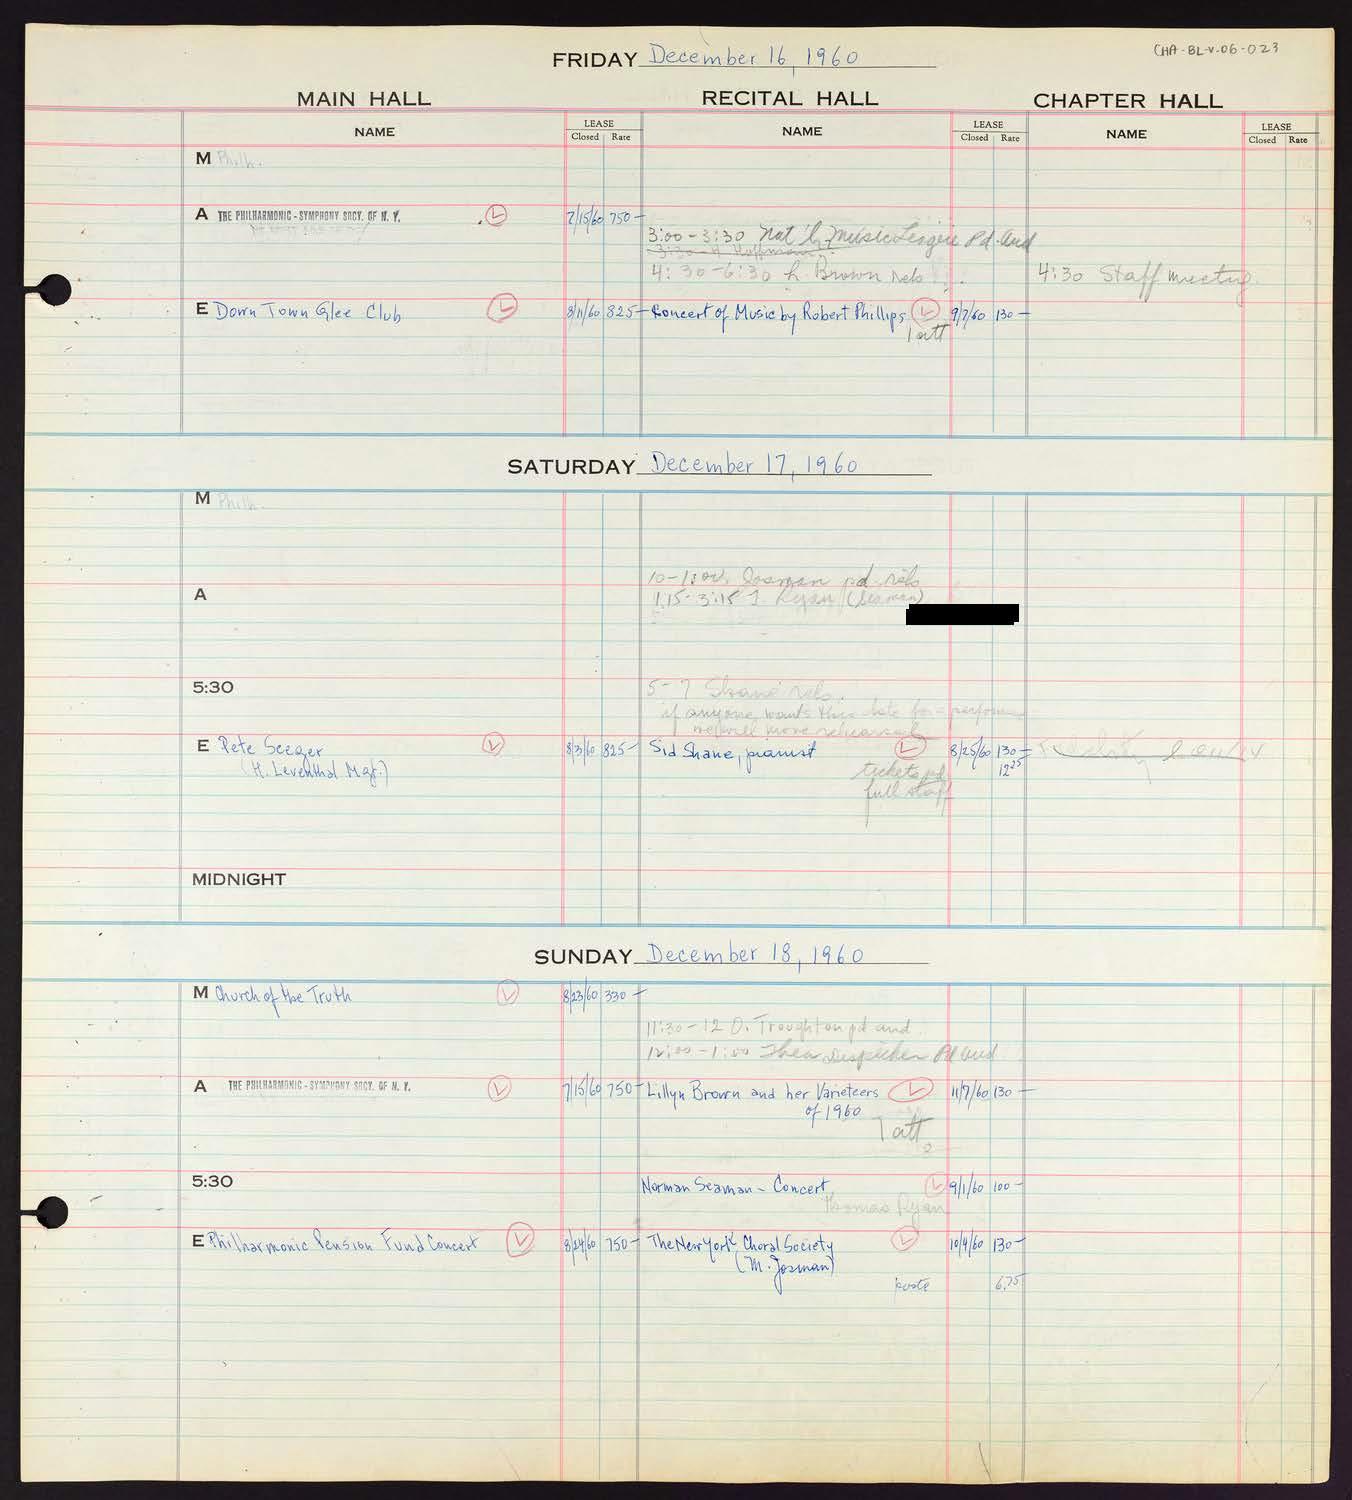 CHA-BL-V-06-023
FRIDAY December 16, 1960
MAIN HALL RECITAL HALL CHAPTER HALL
NAME LEASE Closed Rate NAME LEASE Closed Rate NAME LEASE Closed Rate
M Philh.
A THE PHILHARMONIC-SYMPHONY SOCY. OF N. Y. 7/15/60 750-
3:00-3:30 Nat'l Music League Pd. aud
3:30-4 Hoffman
4:30-6:30 L. Brown reh. 4:30 Staff meeting
E Down Town Glee Club 8/11/60 825- Concert of Music by Robert Phillips 9/7/60 130-
1 att
SATURDAY December 17, 1960
M Philh.
10-1:00 Josman pd. reh.
A 1:15-3:15 T. Ryan (Seaman)
5:30 5-7 Shane reh.
if anyone wants this date for a perform
we will move rehearsal
E Pete Seeger 8/3/60 825- Sid Shane, pianist 8/25/60 130-
(H. Leventhal Mgr.) tickets pd. 12 25
full staff
MIDNIGHT
SUNDAY December 18, 1960
M Church of the Truth 8/23/60 330-
11:30-12 O. Troughton pd aud.
12:00-1:00 Pd aud
A THE PHILHARMONIC-SYMPHONY SOCY. OF N. Y. 7/15/60 750- Lillyn Brown and her Varieteers 11/7/60 130-
of 1960
1 att.
5:30 Norman Seaman - Concert 9/1/60 100-
Thomas Ryan
E Philharmonic Pension Fund Concert 8/24/60 750- The New York Choral Society 10/4/60 130-
(M. Josman)
6.75